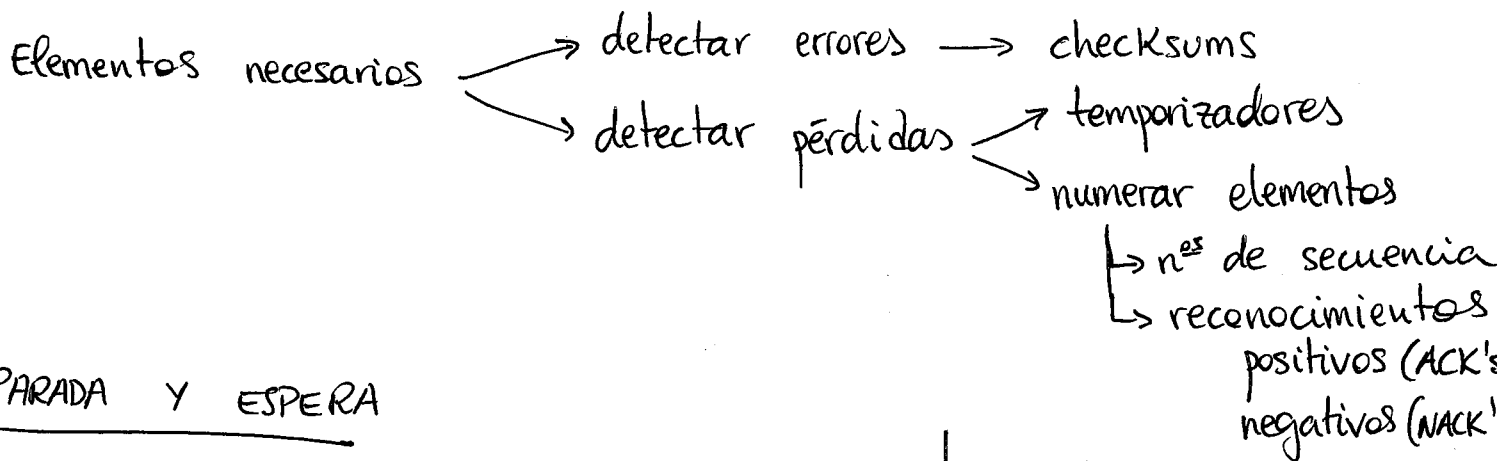 Elementos necesarios → detectar errores → checksums
→ detectar pérdidas → temporizadores
→ numerar elementos
↳ nºs de secuencia
↳ reconocimientos
positivos (ACK's
negativos (NACK'
PARADA Y ESPERA